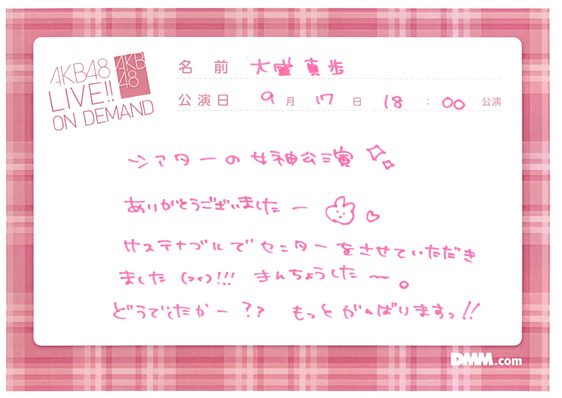 AKB48
LIVE!!
ON DEMAND
AKB
48
名 前 大盛真歩
公演日 9月 17日 18:00公演
シアターの女神公演
ありがとうございましたー
サステナブルでセンターをさせていただき
ました(>_<)!!! きんちょうした〜。
どうでしたかー?? もっとがんばりますっ!!
DMM.com